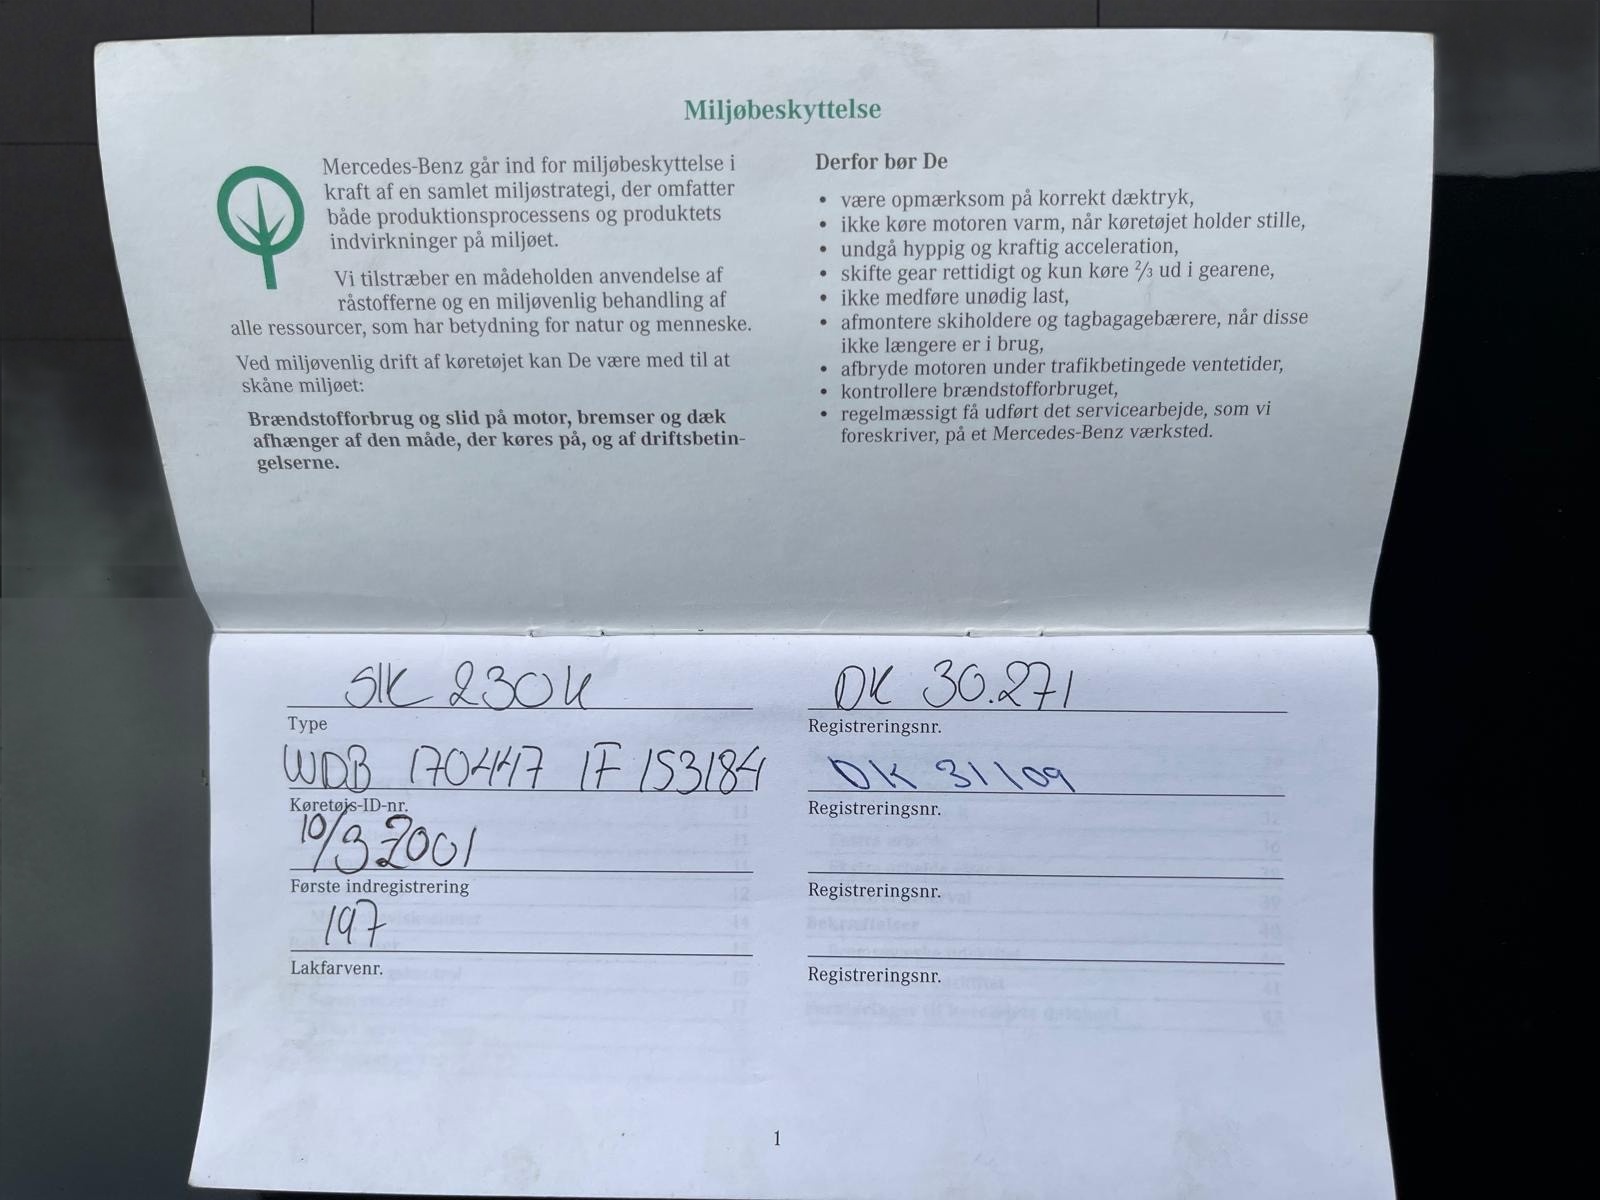 Miljøbeskyttelse
Mercedes-Benz går ind for miljøbeskyttelse i
kraft af en samlet miljøstrategi, der omfatter
både produktionsprocessens og produktets
indvirkninger på miljøet.
Vi tilstræber en mådeholden anvendelse af
råstofferne og en miljøvenlig behandling af
alle ressourcer, som har betydning for natur og menneske.
Ved miljøvenlig drift af køretøjet kan De være med til at
skåne miljøet:
Brændstofforbrug og slid på motor, bremser og dæk
afhænger af den måde, der køres på, og af driftsbetin-
gelserne.
Derfor bør De
• være opmærksom på korrekt dæktryk,
• ikke køre motoren varm, når køretøjet holder stille,
• undgå hyppig og kraftig acceleration,
• skifte gear rettidigt og kun køre 2/3 ud i gearene,
• ikke medføre unødig last,
• afmontere skiholdere og tagbagagebærere, når disse
ikke længere er i brug,
• afbryde motoren under trafikbetingede ventetider,
• kontrollere brændstofforbruget,
• regelmæssigt få udført det servicearbejde, som vi
foreskriver, på et Mercedes-Benz værksted.
SLK 230K
Type
WDB 170447 1F 153184
Køretøjs-ID-nr.
10/9 2001
Første indregistrering
197
Lakfarvenr.
DK 30.271
Registreringsnr.
DK 31109
Registreringsnr.
Registreringsnr.
Registreringsnr.
1